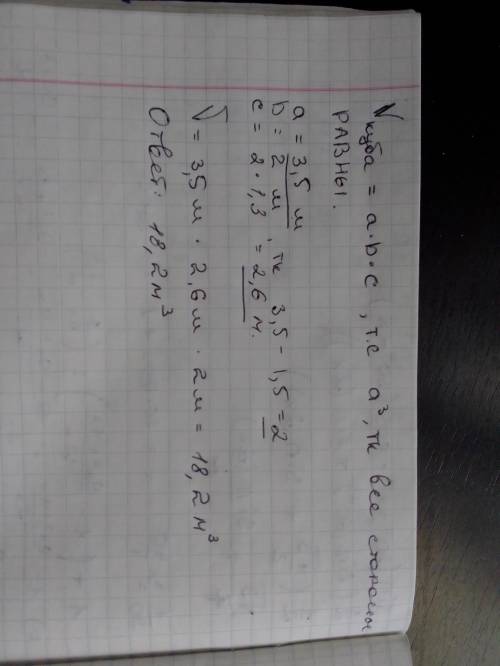 V куба = a·b·c, т.е a³, тк все стороны
РАВНЫ.
a = 3,5 м
b = 2 м, тк 3,5 - 1,5 = 2
c = 2·1,3 = 2,6 м.
V = 3,5 м · 2,6 м · 2 м = 18,2 м³
Ответ: 18,2 м³